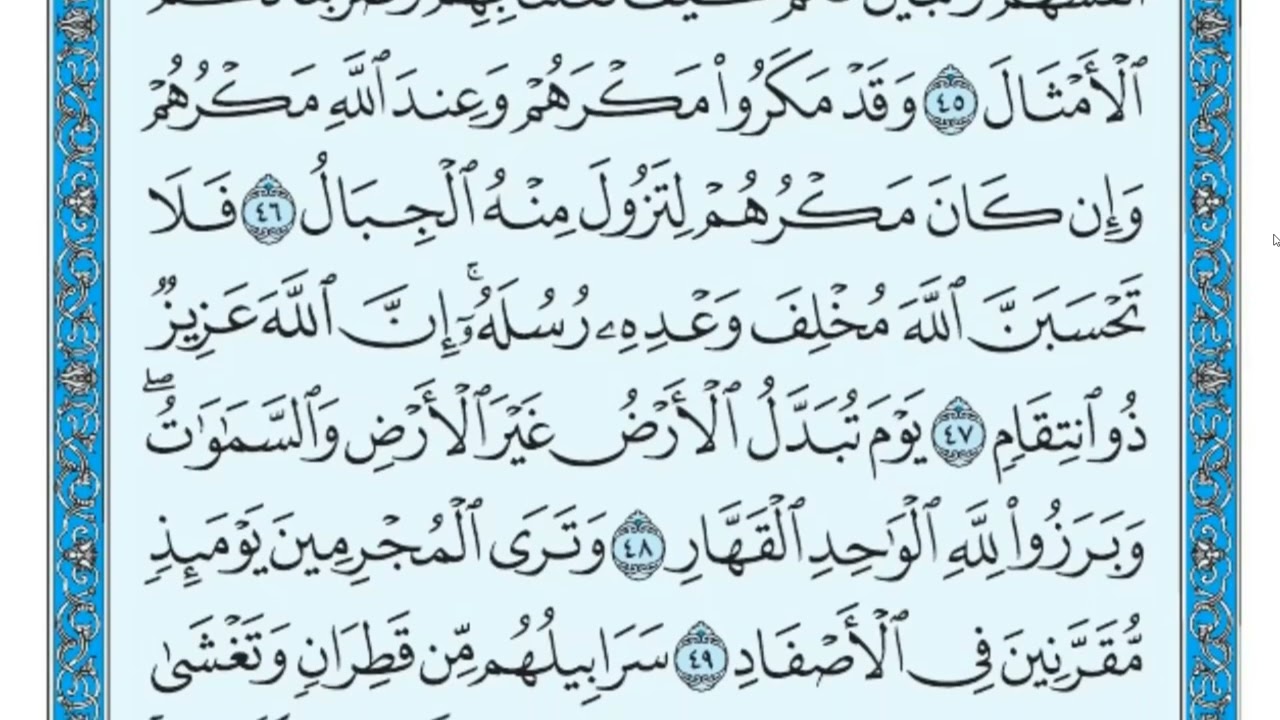 ٱلْأَمْثَالَ ٤٥ وَقَدْ مَكَرُوا۟ مَكْرَهُمْ وَعِندَ ٱللَّهِ مَكْرُهُمْ
وَإِن كَانَ مَكْرُهُمْ لِتَزُولَ مِنْهُ ٱلْجِبَالُ ٤٦ فَلَا
تَحْسَبَنَّ ٱللَّهَ مُخْلِفَ وَعْدِهِۦ رُسُلَهُۥٓ ۚ إِنَّ ٱللَّهَ عَزِيزٌ
ذُو ٱنتِقَامٍ ٤٧ يَوْمَ تُبَدَّلُ ٱلْأَرْضُ غَيْرَ ٱلْأَرْضِ وَٱلسَّمَٰوَٰتُ ۖ
وَبَرَزُوا۟ لِلَّهِ ٱلْوَٰحِدِ ٱلْقَهَّارِ ٤٨ وَتَرَى ٱلْمُجْرِمِينَ يَوْمَئِذٍ
مُّقَرَّنِينَ فِى ٱلْأَصْفَادِ ٤٩ سَرَابِيلُهُم مِّن قَطِرَانٍ وَتَغْشَىٰ